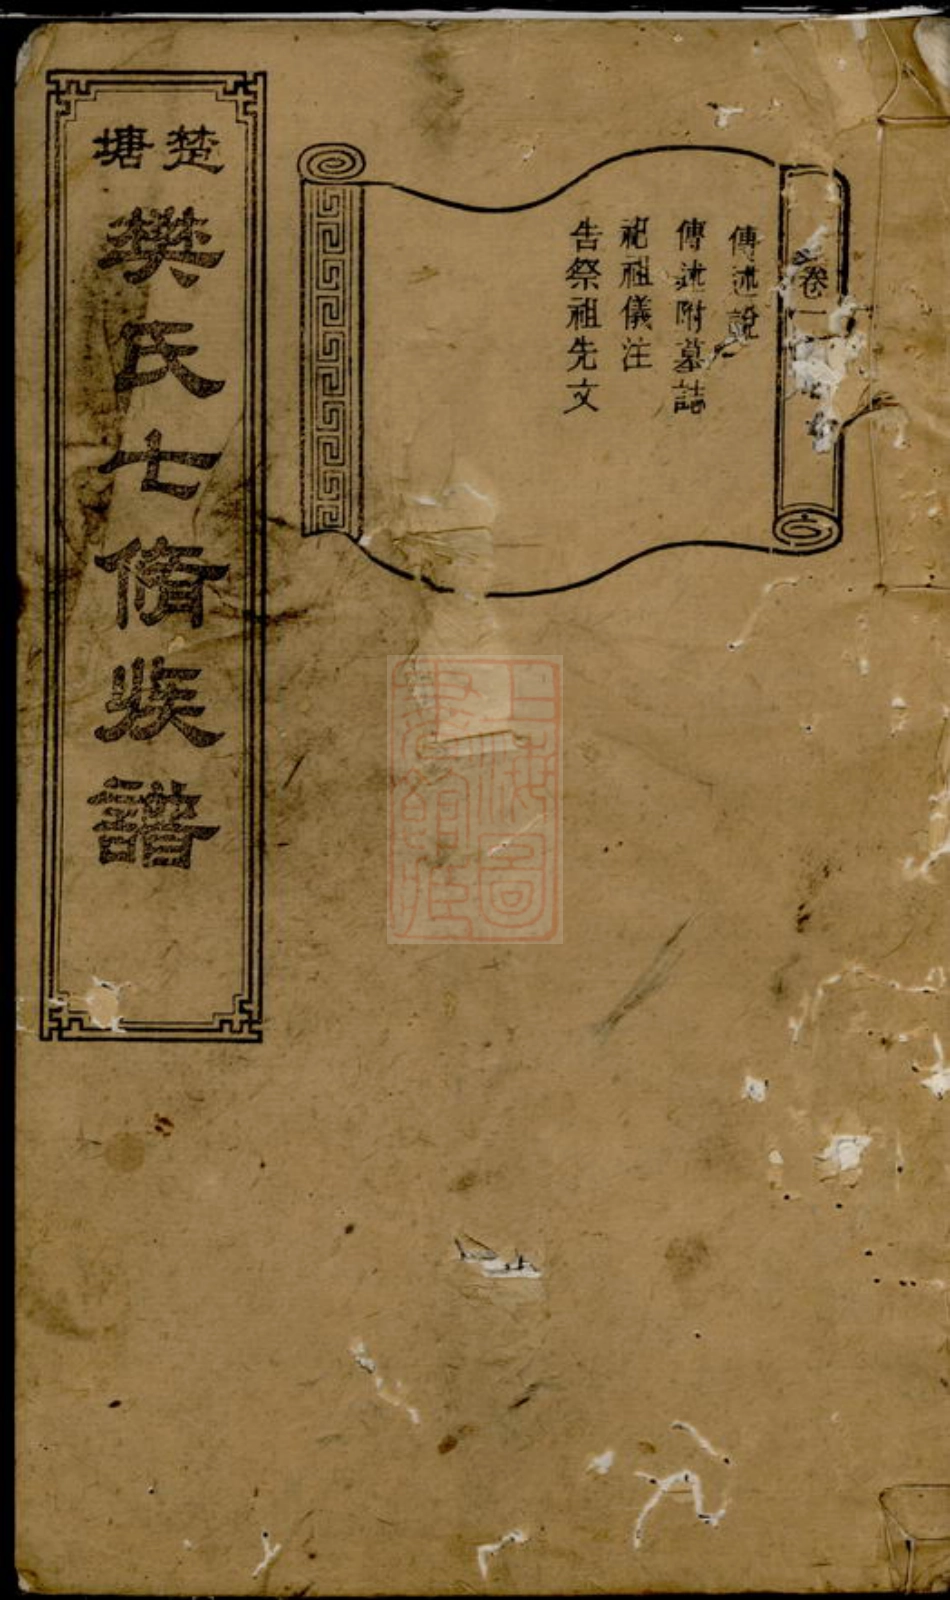 卷一
傳述說
傳述附墓誌
祀祖儀注
告祭祖先文
楚塘
樊氏七脩族譜
上海圖書館藏